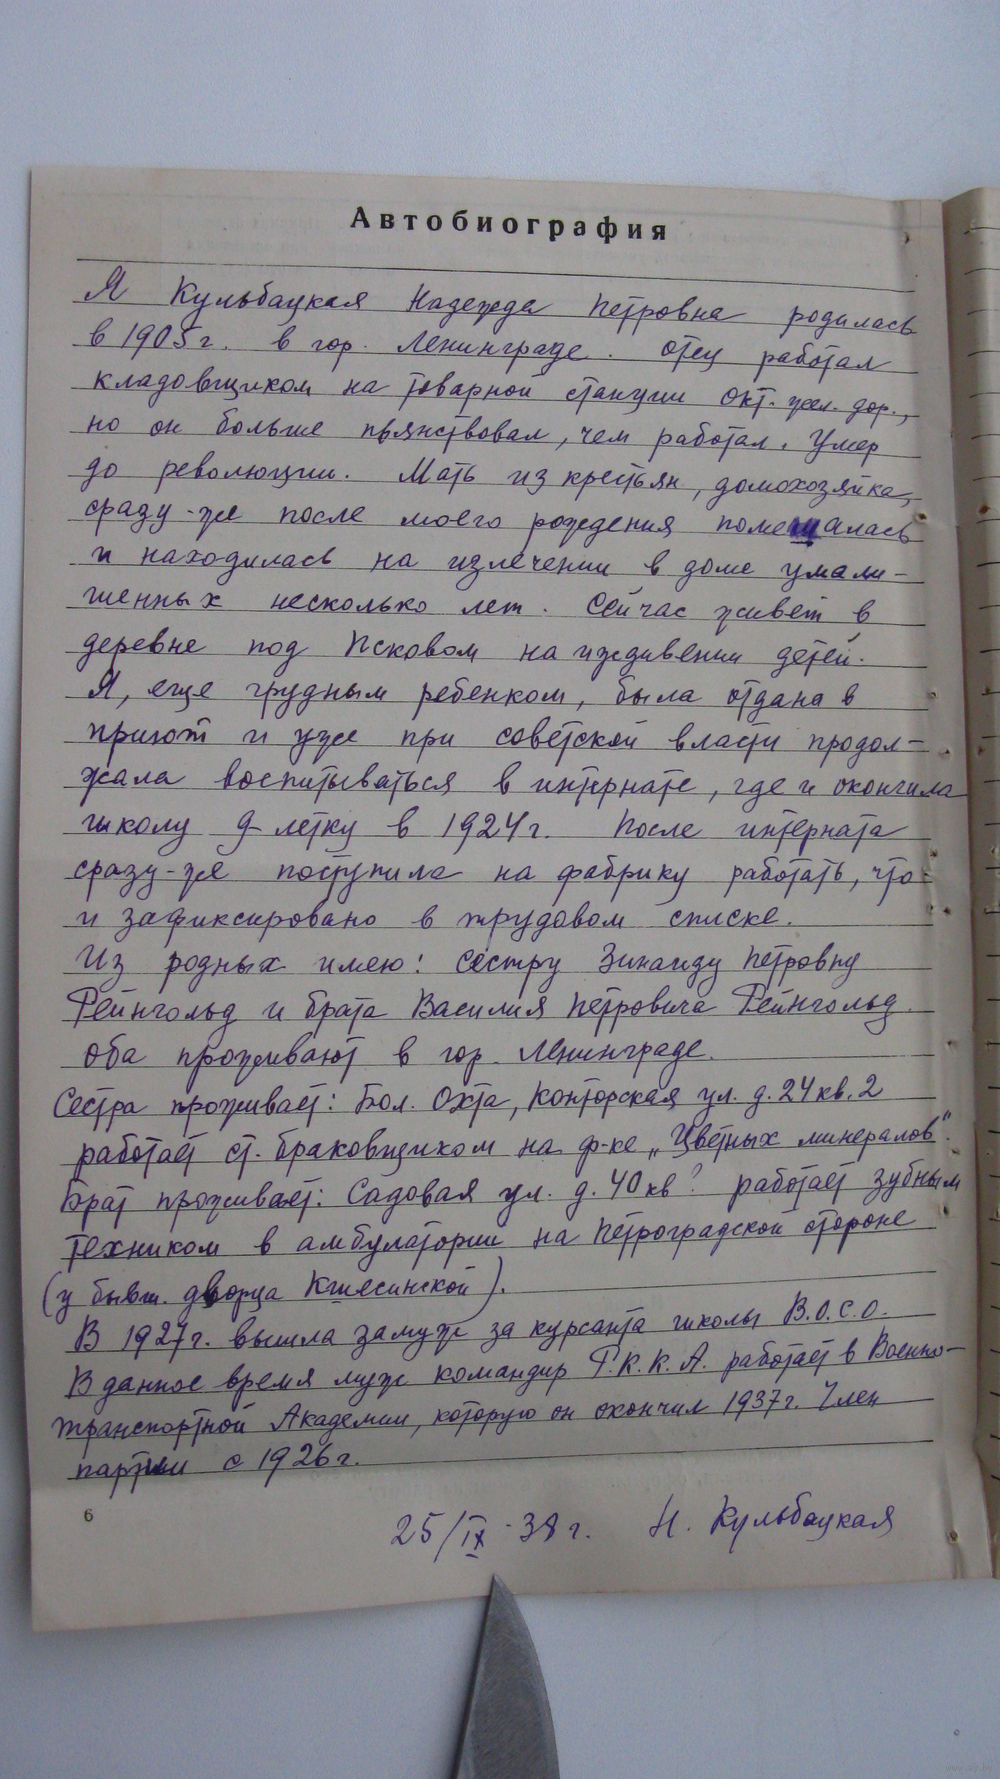 Автобиография
Я Кульбацкая Надежда Петровна родилась
в 1905 г. в гор. Ленинграде. Отец работал
кладовщиком на товарной станции Окт. жел. дор.,
но он больше пьянствовал, чем работал. Умер
до революции. Мать из крестьян, домохозяйка,
сразу-же после моего рождения помешалась
и находилась на излечении в доме умали-
шенных несколько лет. Сейчас живет в
деревне под Псковом на иждивении детей.
Я, еще грудным ребенком, была отдана в
приют и уже при советской власти продол-
жала воспитываться в интернате, где и окончила
школу 9-летку в 1924 г. После интерната
сразу-же поступила на фабрику работать, что
и зафиксировано в трудовом списке.
Из родных имею: сестру Зинаиду Петровну
Рейнгольд и брата Василия Петровича Рейнгольд.
Оба проживают в гор. Ленинграде.
Сестра проживает: Бол. Охта, Конторская ул. д. 24 кв. 2
работает ст. браковщиком на ф-ке „Цветных минералов".
Брат проживает: Садовая ул. д. 40 кв ? работает зубным
техником в амбулатории на Петроградской стороне
(у бывш. дворца Кшесинской).
В 1927 г. вышла замуж за курсанта школы В.О.С.О.
В данное время муж командир Р.К.К.А. работает в Военно-
транспортной Академии, которую он окончил 1937 г. Член
партии с 1926 г.
6
25/IX-38 г. Н. Кульбацкая